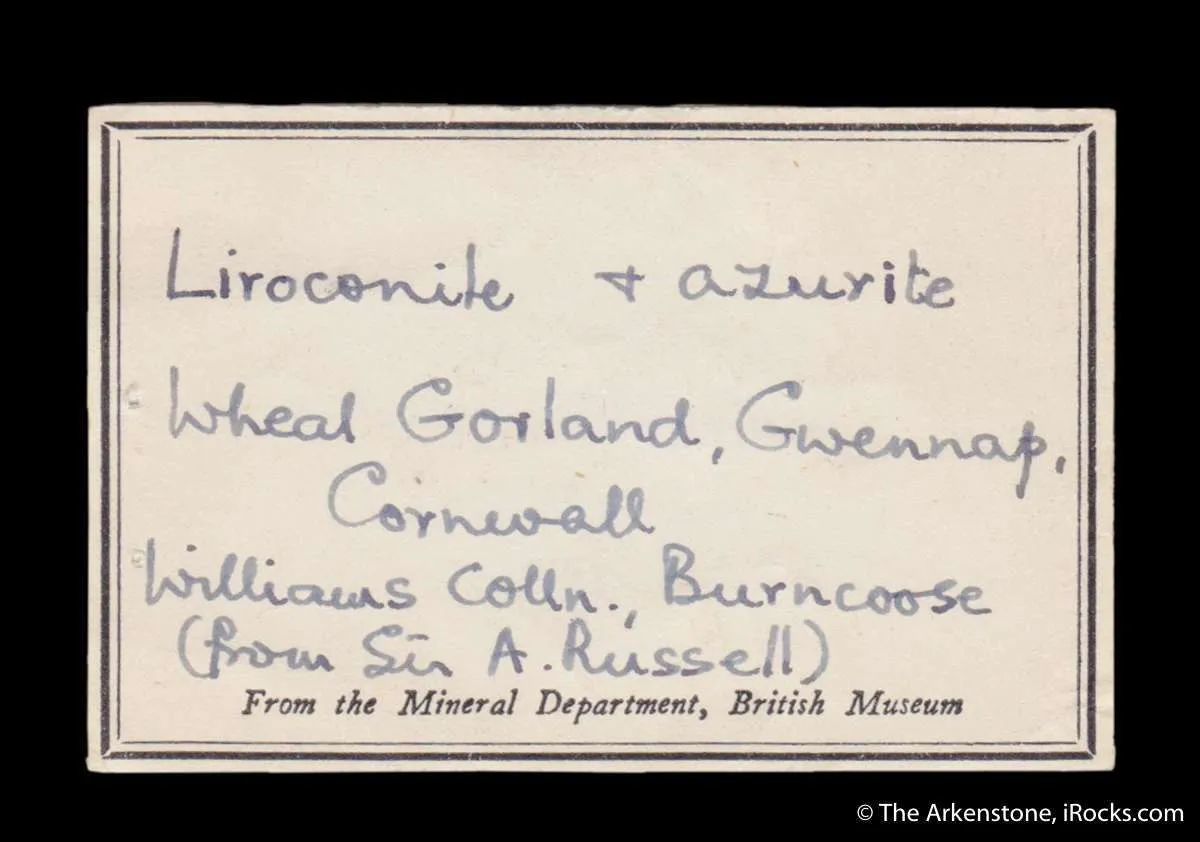 Liroconite + azurite
Wheal Gorland, Gwennap,
Cornwall
Williams Colln., Burncoose
(from Sir A. Russell)
From the Mineral Department, British Museum
© The Arkenstone, iRocks.com